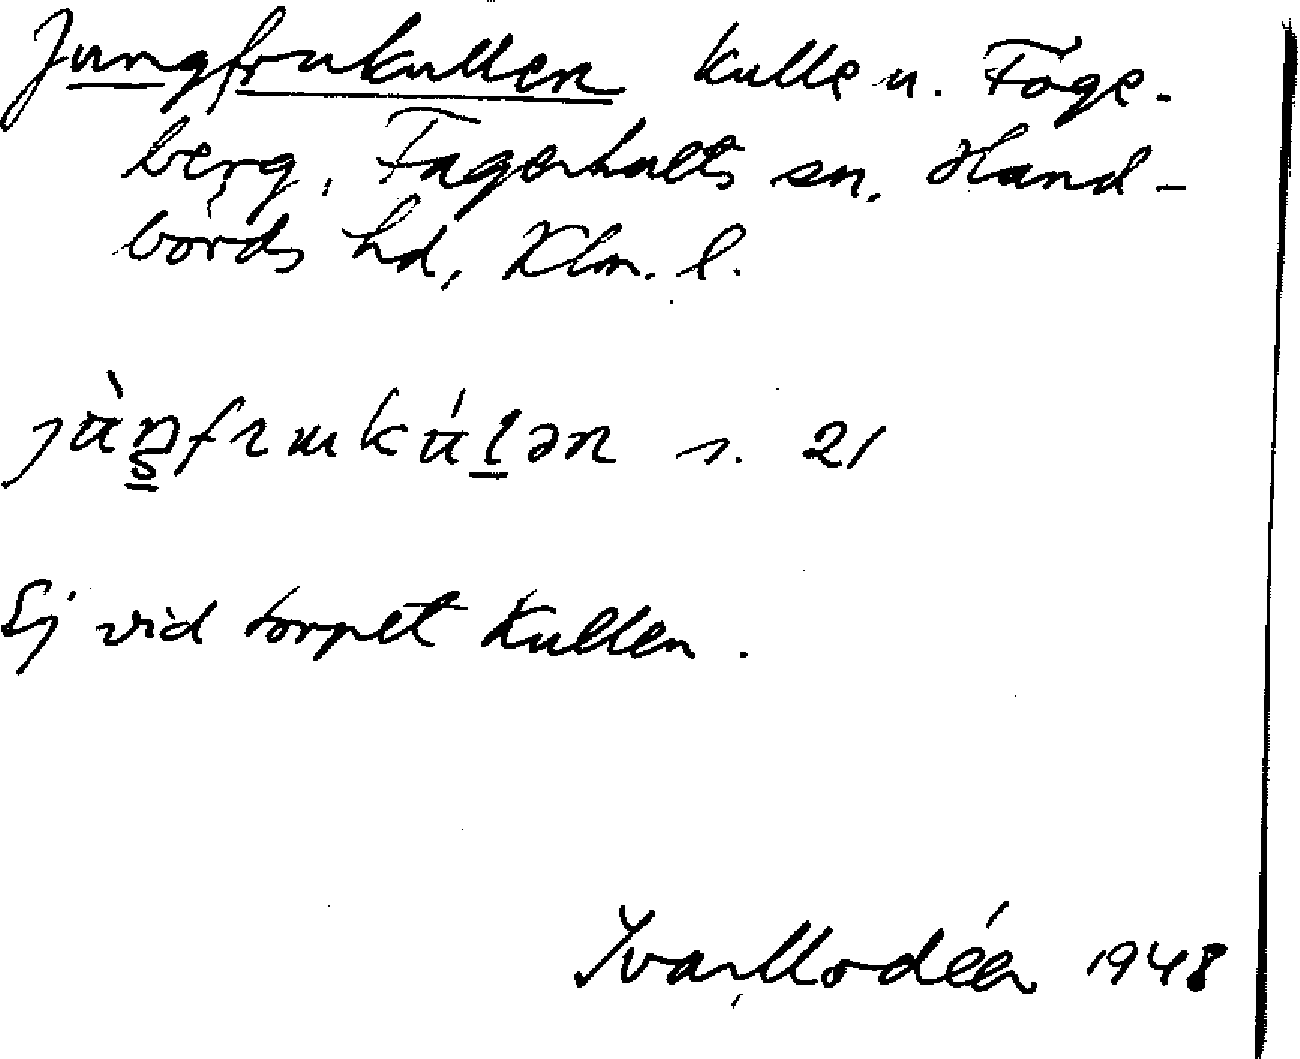 Jungfrukullen kulle n. Fage-
berg, Fagerhults sn. Hand-
börds hd, Klm. l.
s. 21
Ej vid torpet Kullen.
Ivar Modéer 1948